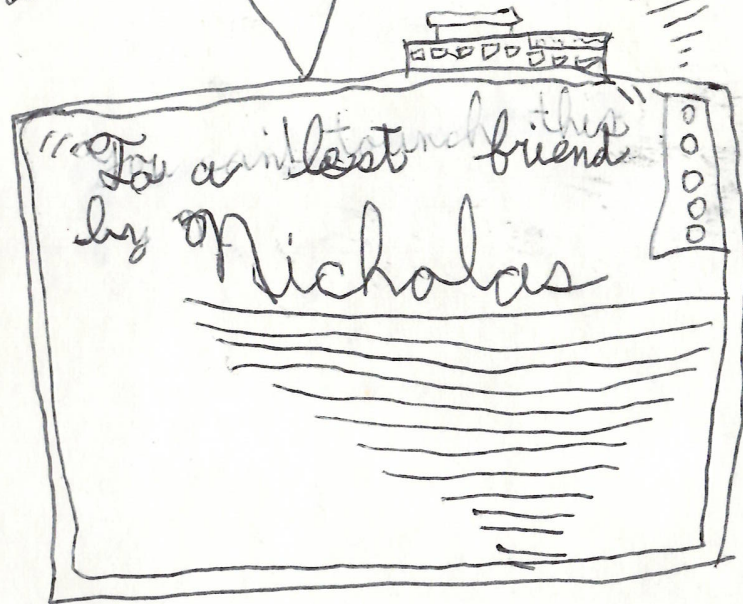 "To a lost friend
by Nicholas